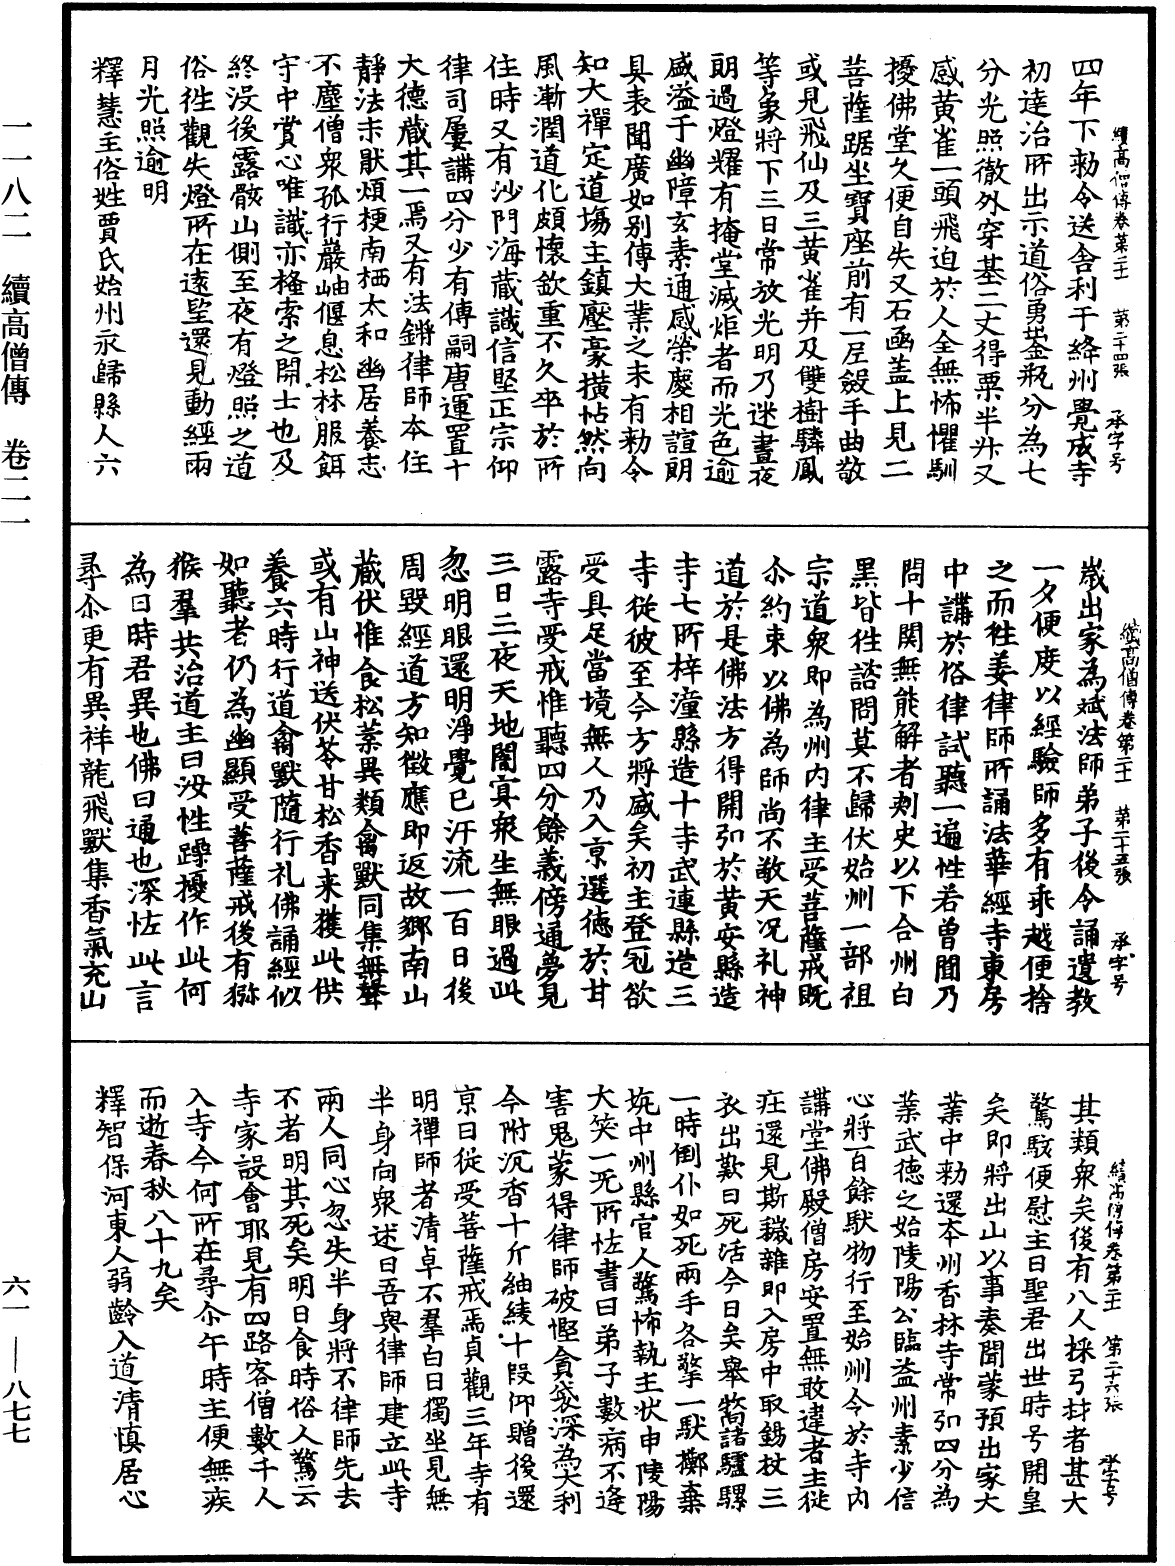 一一八二　續高僧傳　卷二一
六一——八七七
續高僧傳卷第二十一　第二十四張　承字号
四年下勑令送舍利于絳州覺成寺
初達治所出示道俗勇莖瓶分為七
分光照徹外穿基二丈得粟半升又
感黃雀一頭飛迫於人全無怖懼馴
擾佛堂久便自失又石函盖上見二
菩薩踞坐寶座前有一尼斂手曲敬
或見飛仙及三黃雀并及雙樹驎鳳
等象將下三日常放光明乃迷晝夜
朗過燈耀有掩堂滅炬者而光色逾
盛溢于幽障玄素通感榮慶相諠朗
具表聞廣如別傳大業之末有勑令
知大禪定道場主鎮壓豪横怗然向
風漸潤道化頗懷欽重不久卒於所
住時又有沙門海藏識信堅正宗仰
律司屢講四分少有傳嗣唐運置十
大德藏其一焉又有法鏘律師本住
靜法末猒煩梗南栖太和幽居養志
不塵僧衆孤行巖岫偃息松林服餌
守中賞心唯識亦㩁索之開士也及
終沒後露骸山側至夜有燈照之道
俗往觀失燈所在遠望還見動經兩
月光照逾明
釋慧主俗姓賈氏始州永歸縣人六
續高僧傳卷第二十一　第二十五張　承字号
歲出家為斌法師弟子後令誦遺教
一夕便度以經驗師多有乖越便捨
之而往姜律師所誦法華經寺東房
中講於俗律試聽一遍性若曾聞乃
問十関無能解者刾史以下合州白
黑皆往諮問莫不歸伏始州一部祖
宗道衆即為州内律主受菩薩戒既
尒約束以佛為師尚不敬天况礼神
道於是佛法方得開弘於黃安縣造
寺七所梓潼縣造十寺武連縣造三
寺從彼至今方將盛矣初主登冠欲
受具足當境無人乃入京選德於甘
露寺受戒惟聽四分餘義傍通夢見
三日三夜天地闇冥衆生無眼過此
忽明眼還明淨覺已汗流一百日後
周毀經道方知徵應即返故鄉南山
藏伏惟食松葉異類禽獸同集無聲
或有山神送伏苓甘松香来獲此供
養六時行道禽獸隨行礼佛誦經似
如聽者仍為幽顯受菩薩戒後有猕
猴羣共治道主曰汝性躁擾作此何
為曰時君異也佛日通也深怪此言
尋尒更有異祥龍飛獸集香氣充山
續高僧傳卷第二十一　第二十六張　承字号
其類衆矣後有八人採弓材者甚大
驚駭便慰主曰聖君出世時号開皇
矣即將出山以事奏聞蒙預出家大
業中勑還本州香林寺常弘四分為
業武德之始陵陽公臨益州素少信
心將百餘馱物行至始州令於寺内
講堂佛殿僧房安置無敢違者主從
庄還見斯穢雜即入房中取錫杖三
衣出歎曰死活今日矣舉㧞諸驢騾
一時倒仆如死兩手各擎一馱擲棄
坑中州縣官人驚怖執主狀申陵陽
大笑一死所怪書曰弟子數病不逢
害鬼蒙得律師破慳貪袋深為大利
今附沉香十斤紬綾十段仰贈後還
京日從受菩薩戒焉貞觀三年寺有
明禪師者清卓不羣白日獨坐見無
半身向衆述曰吾與律師建立此寺
兩人同心忽失半身將不律師先去
不者明其死矣明日食時俗人驚云
寺家設會耶見有四路客僧數千人
入寺今何所在尋尒午時主便無疾
而逝春秋八十九矣
釋智保河東人弱齡入道清慎居心